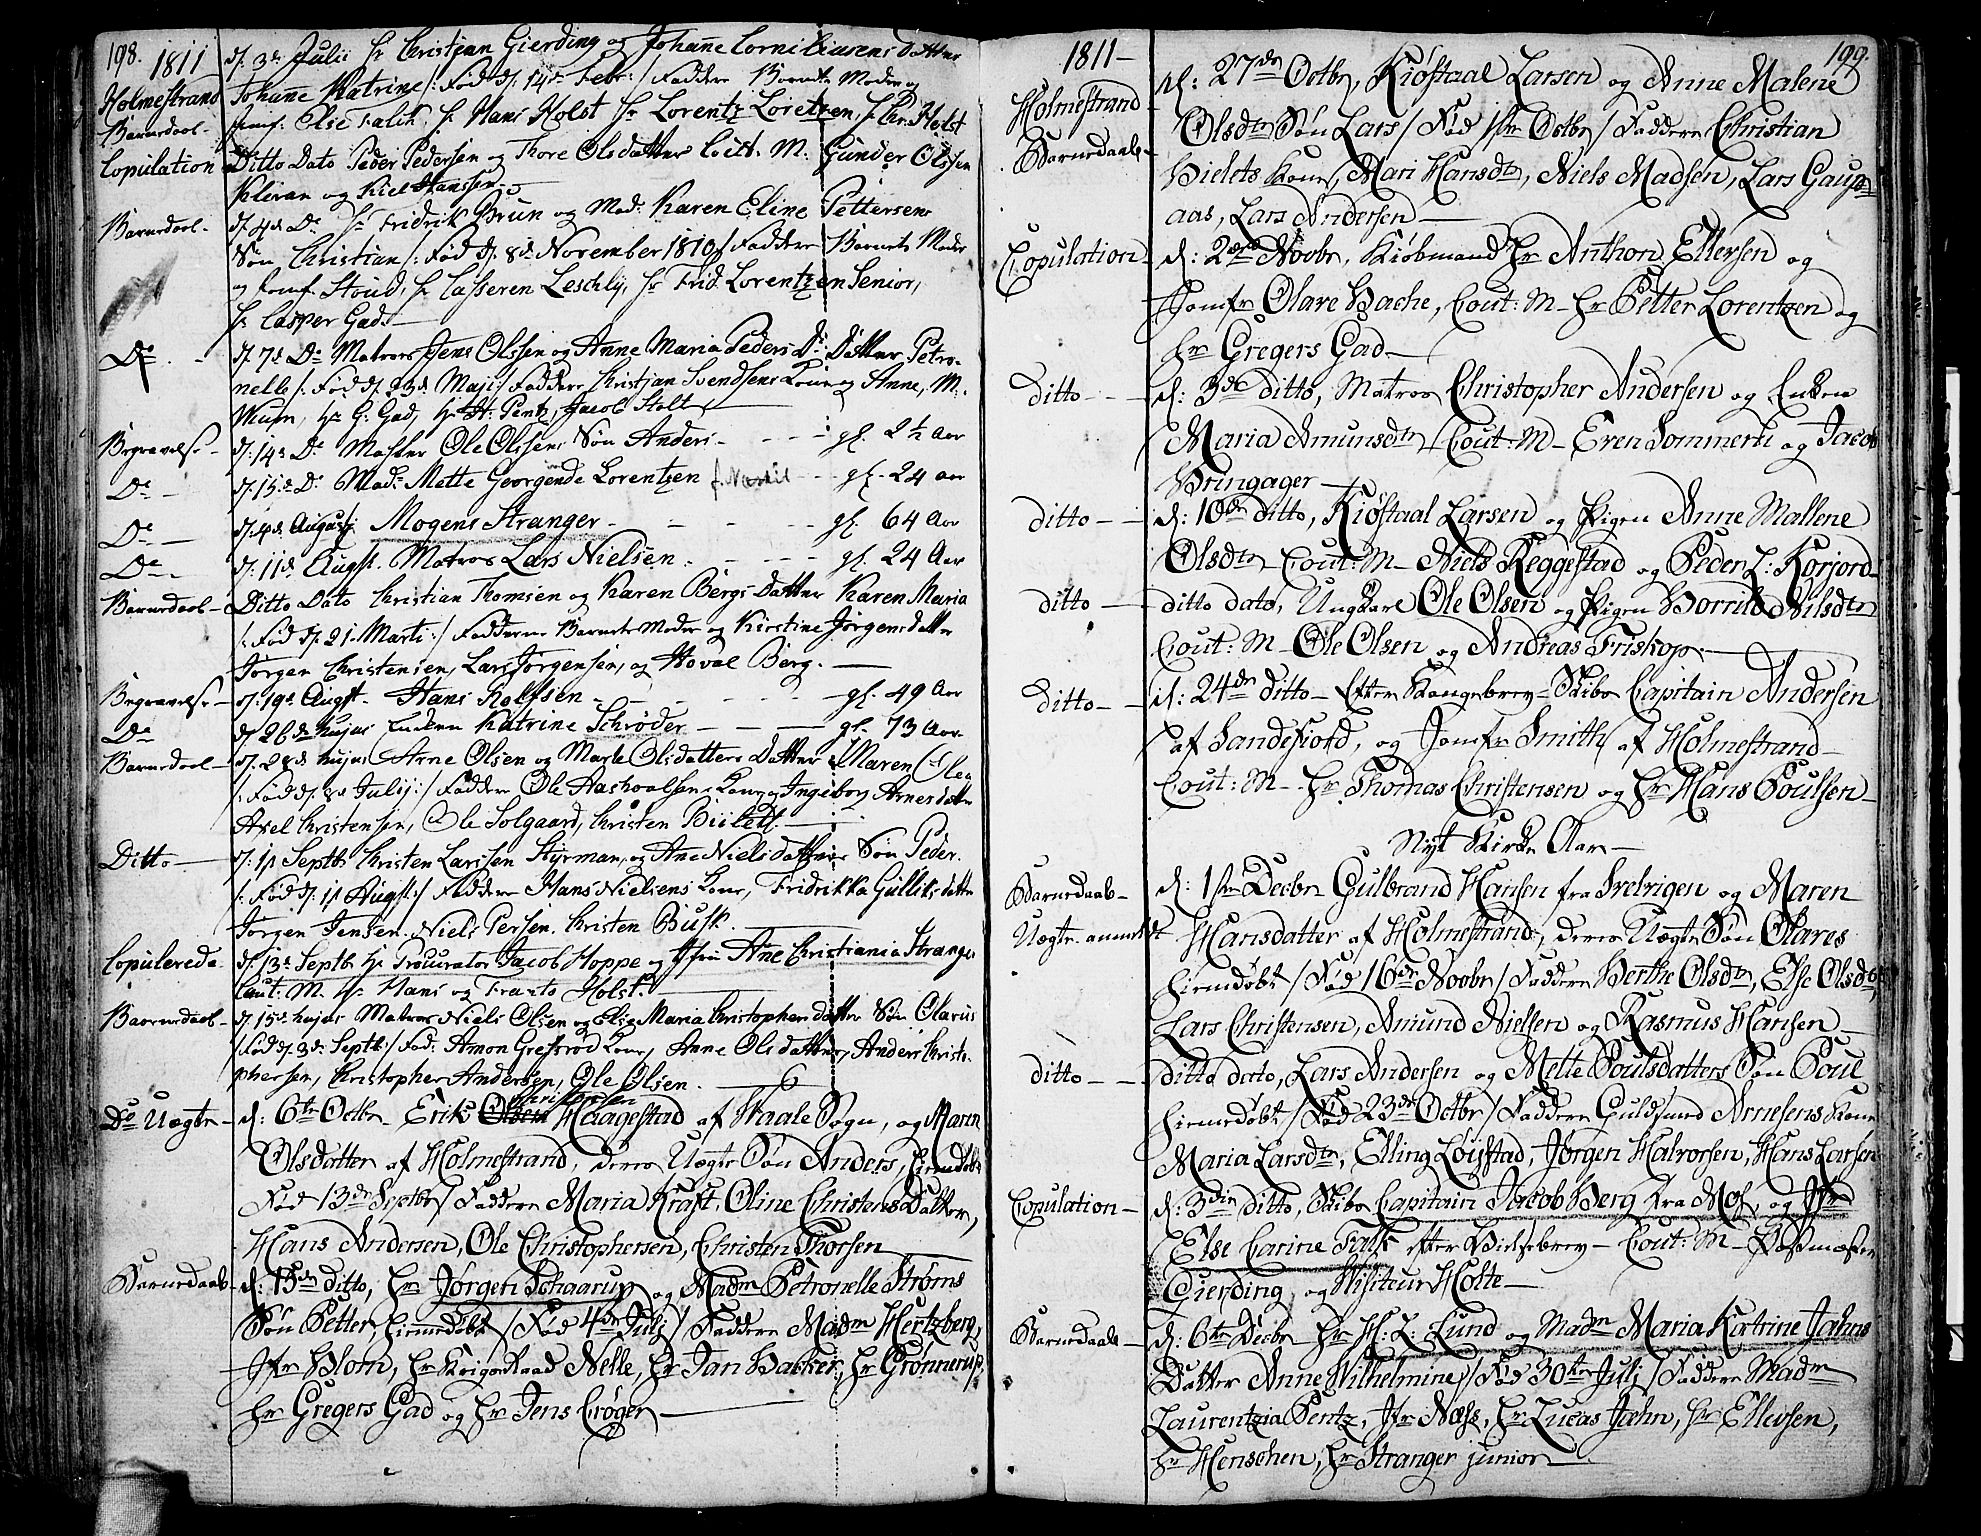 198. 1811 d. 3de Julii Hr Christian Gierding og Johanne Corneliusens datter
Holmestrand Johanne Katrine /: Fød d. 14de Febr: / Faddere Barnets Moder og
Barnedaab - Jomf: Else Falck. Hr Hans Holst Hr Lorentz Loretzen Hr Chr. Holst
Copulation Ditto Dato Peder Pedersen og Thore Olsdatter Cout. M. Gunder Olsen
Kleivan og Kiel Hanssen
Barnedaab - d. 4de Do Hr Fridrik Brun og Mad: Karen Eline Pettersens
Søn Christian /: Fød d. 8de November 1810 / Faddere Barnets Moder
og Jomf. Stoud, Hr Casseren Leschly, Hr Frid. Lorentzen Senior,
Hr Casper Gad
Do - d. 7de Do Matros Jens Olssen og Anne Maria Peders Dr Datter Petro-
nelle /: Fød d. 23de Maji / Faddere Christjan Svendsens Kone og Anne, M.
Hr G. Gad, Hr H. Pentz, Jacob Holt
Begravelse - d. 14de Do Matros Ole Olsens Søn Anders - - - gl. 2½ Aar
Do - d. 15de Do Mad: Mette Georgende Lorentzen - - gl. 24 aar
Do - d. 4de August Mogens Stranger - - - gl. 64 Aar
Do - d. 11de Augst. Matros Lars Nielsen - - - gl. 24 Aar
Barnedaab - Ditto Dato Christian Thomsen og Karen Bergs Datter Karen Maria
/: Fød d. 21. Marti :/ Fadderne Barnets Moder og Kirstine Jørgensdatter
Jørgen Christensen, Lars Jørgensen, og Hoval Berg.
Begravelse - d. 19de Augst. Hans Rolfsen - - - gl. 49 Aar
Do d. 26de hujus Enken Katrine Schrøder - - gl. 73 Aar
Barnedaab - d. 28de hujus Arne Olsen og Marte Olsdatters Datter Maren Olea
/: Fød d. 8de Julij :/ Faddere Ole Aaskoalsens Kone og Ingeborg Arnesdatter
Axel Christensen, Ole Solgaard, Christen Biilett.
Ditto - d. 1ste Septbr Christen Larssen Styrman, og Ane Nielsdatters Søn Peder.
/: Fød d. 1ste Augst :/ Faddere Hans Nielsens Kone, Fridrikka Gulliksdatter
Jørgen Jensen. Niels Persen. Christen Busk.
Copulerede d. 13de Septbr Hr Procurator Jacob Hoppe og Jfru Ane Christiania Stranger
Caut. M. Hr Hans og Frants Holst.
Barnedaab - d. 15de hujus Matros Niels Olsen og Elig Maria Christophersdatter Søn Olarus
/Fød d. 3de Septb:/ Fad: Amon Gresrød Kone, Anne Olsdatter, Anders Christo-
phersen, Christopher Andersen, Ole Olsen.
Christensen
Do Uægte - d: 6te Octbr Erik Olsen Haagestad af Waale Sogn, og Maren
Olsdatter af Holmestrand, deres Uægte Søn Anders, hiemdøbt
Fød 13de Septbr / Faddere Maria Kraft, Oline Christensdatter,
Hans Andersen, Ole Christophersen, Christen Thorsen
Barnedaab - d: 15de ditto, Hr Jørgen Schaarup og Madm Petronelle Strøms
Søn Petter, hiemdøbt / Fød 4de Julj / Faddere Madm Hertzberg,
Jfr Blom, Hr Krigsraad Nelle, Hr Jan Bakker, Hr Grønnerup,
Hr Gregers Gad og Hr Jens Crøger
1811 - 199.
Holmestrand d: 27de Octbr, Kiøstaal Larsen og Anne Malene
Barnedaab - Olsdtr Søn Lars / Fød 1ste Octbr / Faddere Christian
Bielets Kone, Mari Hansdtr, Niels Madsen, Lars Gaup-
aas, Lars Andersen
Copulation - d: 2den Novbr, Kiøbmand Hr Anthon Ellersen og
Jomfr Olave Bache, Cout: M - Hr Petter Lorentzen og
Hr Gregers Gad
ditto - d: 3de ditto, Matros Christopher Andersen og Enken
Maria Amunsdtr Cout: M - Eren Sommerti og Jacob
Bringager
ditto - d: 10de ditto, Kiøstaal Larsen og Pigen Anne Mallene
Olsdtr Cout: M - Niels Reggestad og Peder L: Korjord
ditto - ditto dato, Ungkarl Ole Olsen og Pigen Borrild Nilsdtr
Cout: M - Ole Olsen og Andreas Friskop.
ditto - d: 24de ditto - Efter Kongebrev - Skibs Capitain Andersen
af Sandefiord, og Jomfr Smith af Holmestrand
Cout: M - Hr Thomas Christensen og Hr Hans Poulssen
Nyt Kirke Aar
Barnedaab - d: 1ste Decbr Gulbrand Hansen fra Srelvigen og Maren
Uægte anmeldt Hansdatter af Holmestrand, deres Uægte Søn Olares
hiemdøbt / Fød 16de Novbr / Faddere Berthe Olsdtr, Else Olsdtr,
Lars Christensen, Amund Nielsen og Rasmus Hansen
ditto - ditto dato, Lars Andersen og Mette Poulsdatters Søn Poul
hiemdøbt / Fød 23de Octbr / Faddere Guldsmed Arnesens Kone
Maria Larsdtr, Elling Løystad, Jørgen Halvorsen, Hans Larsen
Copulation - d: 3die ditto, Skibs Capitain Jacob Berg fra Mos, og Jfr
Else Carine Falk efter Vielsebrev - Cout: M - Postmester
Gierding og Visiteur Holte
Barnedaab - d: 6te Decbr Hr H: L: Lund og Madm Maria Katrine Jahns
Datter Anne Wilhelmine / Fød 30te Julj / Faddere Madm
Laurentzia Pentz, Jfr Næss, Hr Lucas Jæhn, Hr Ellevsen,
Hr Henschen, Hr Stranger junior